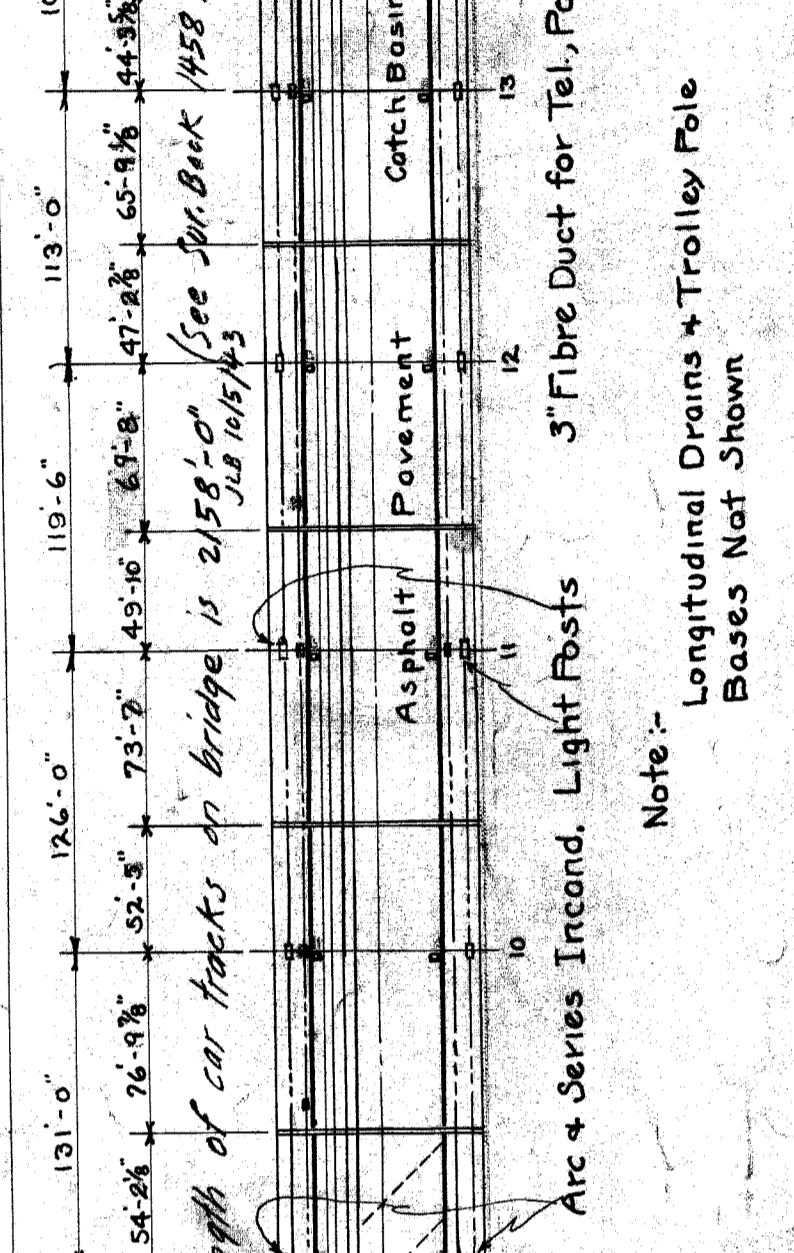 131'-0" 126'-0" 119'-6" 113'-0"
54'-2⅛" 76'-9⅞" 52'-5" 73'-7" 49'-10" 69'-8" 47'-2⅞" 65'-9⅛"
of car tracks on bridge is 2158'-0" (See Sur. Book 1458
JLB 10/5/43
Asphalt Pavement Catch Basin
10 11 12 13
Arc & Series Incand. Light Posts 3" Fibre Duct for Tel.,
Note:-
Longitudinal Drains & Trolley Pole
Bases Not Shown